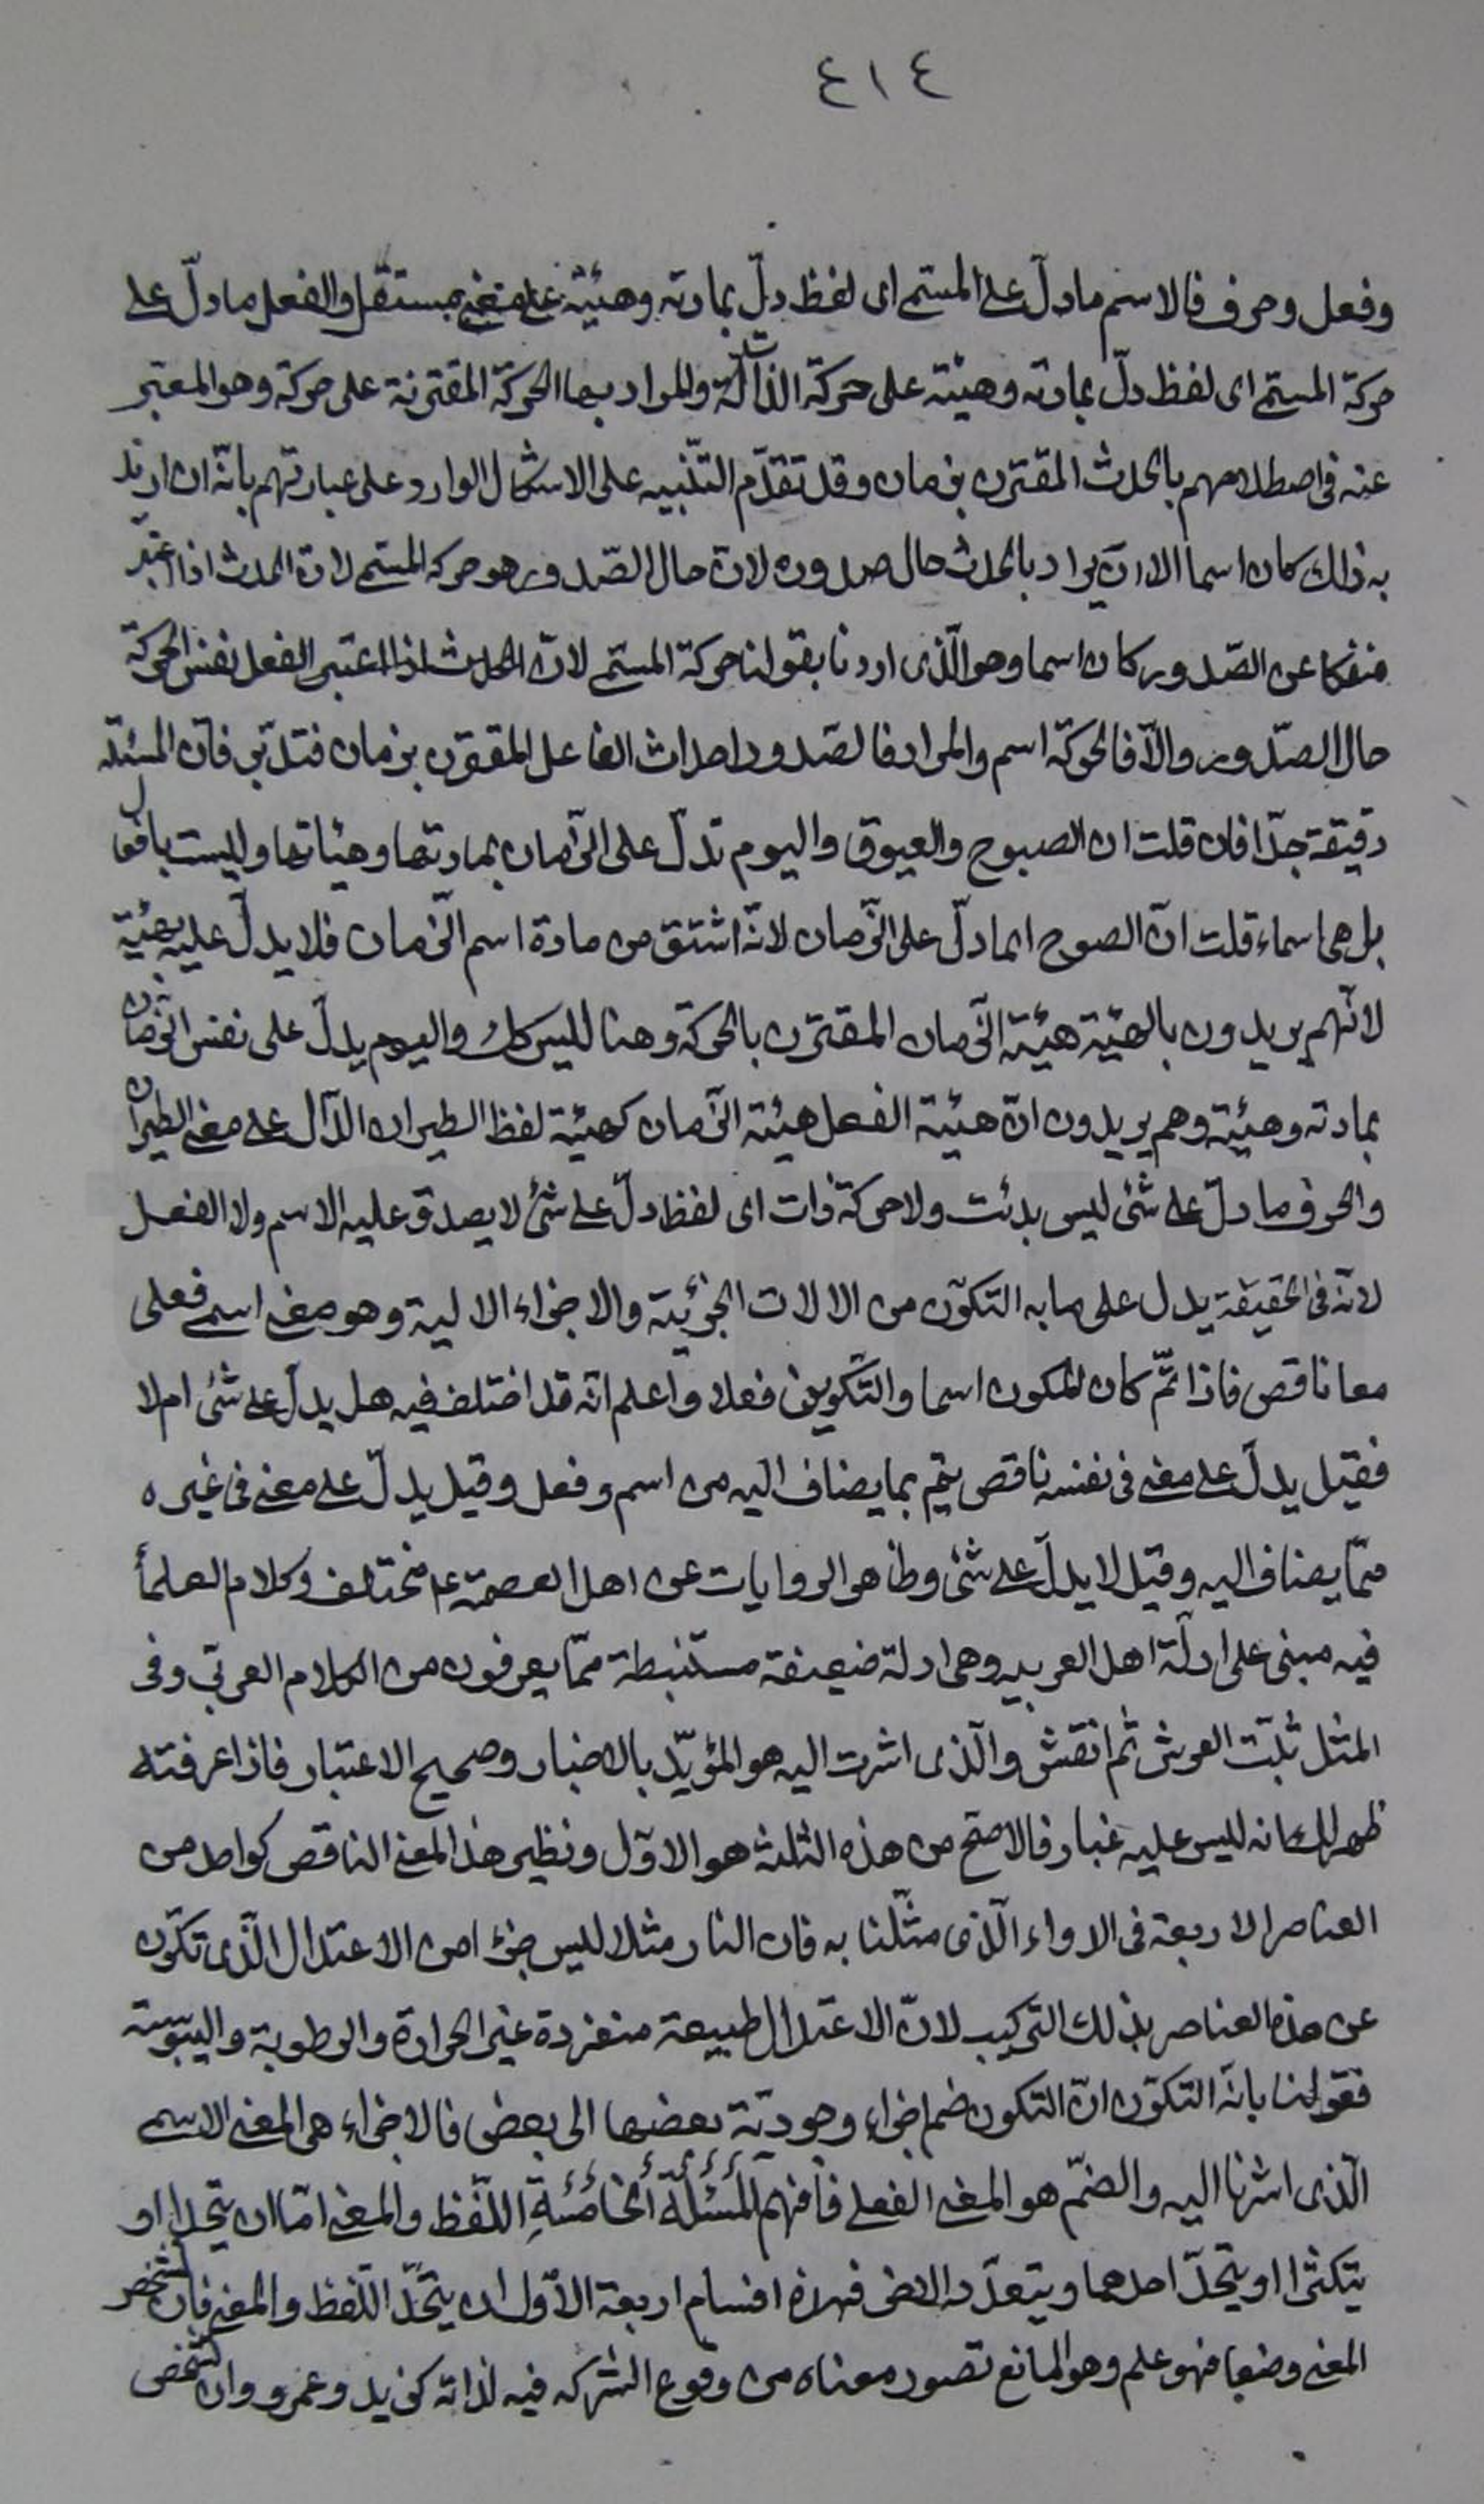 ٤١٤
وفعل وحرف فالاسم ما دلّ على المسمى اى لفظ دلّ بمادته وهيئته على معنى مستقل والفعل ما دلّ على
حركة المسمى اى لفظ دلّ بمادته وهيئته على حركة الذات والمراد بها الحركة المقترنة على حركة وهو المعتبر
عنه فى اصطلاحهم بالحدث المقترن بزمان وقد تقدّم التّنبيه على الاشكال الوارد على عبارتهم بانّه ان اريد
به ذلك كان اسما الا ان يراد بالحدث حال صدوره لان حال الصّدور هو حركة المسمى لان الحدث اذا اعتبر
منفكا عن الصّدور كان اسما وهو الّذى اردنا بقولنا حركة المسمى لانّ الحدث اذا اعتبر الفعل نفس الحركة
حال الصّدور والّا فالحركة اسم والمراد فالصّدور احداث الفاعل المقترن بزمان فتدبّر فان المسئلة
دقيقة جدّا فان قلت ان الصبوح والعيوق واليوم تدلّ على الزّمان بمادتها وهيئاتها وليست بافعال
بل هى اسماء قلت انّ الصبوح انما دلّ على الزّمان لانّه اشتق من مادة اسم الزّمان فلا يدلّ عليه بهيئته
لانّهم يريدون بالهيئة هيئة الزّمان المقترن بالحركة وهنا ليس كك واليوم يدلّ على نفس الزمان
بمادته وهيئته وهم يريدون انّ هيئة الفعل هيئة الزّمان كهيئة لفظ الطيران الدّال على معنى الطيران
والحرف ما دلّ على شئ ليس بذات ولا حركة ذات اى لفظ دلّ على شئ لا يصدق عليه الاسم ولا الفعل
لانّه فى الحقيقة يدل على ما به التكوّن من الالات الجزئية والاجزاء الالية وهو معنى اسمى فعلى
معا ناقص فاذا تمّ كان المكون اسما والتّكوين فعلا واعلم انّه قد اختلف فيه هل يدلّ على شئ ام لا
فقيل يدلّ على معنى فى نفسه ناقص يتم بما يضاف اليه من اسم وفعل وقيل يدلّ على معنى فى غيره
ممّا يضاف اليه وقيل لا يدلّ على شئ وظاهر الروايات عن اهل العصمة ع مختلف وكلام العلمأ
فيه مبنى على ادلّة اهل العربيه وهى ادلة ضعيفة مستنبطة ممّا يعرفون من الكلام العربّى وفى
المثل ثبّت العرش ثم انقش والّذى اشرت اليه هو المؤيّد بالاخبار وصحيح الاعتبار فاذا عرفته
ظهر لك انه ليس عليه غبار فالاصح من هذه الثلثة هو الاوّل ونظير هذا المعنى الناقص كواحد من
العناصر الاربعة فى الاواء الّذى مثّلنا به فان النار مثلا ليس جزءا من الاعتدال الّذى تكوّن
عن هذه العناصر بذلك التركيب لانّ الاعتدال طبيعة منفردة غير الحرارة والرطوبة واليبوسة
فقولنا بانّه التكوّن انّ التكون ضم اجزاء وجوديّة بعضها الى بعض فالاجزاء هى المعنى الاسمى
الّذى اشرنا اليه والضمّ هو المعنى الفعلى فافهم المسئلة الخامسة اللّفظ والمعنى امّا ان يتحدا او
يتكثرا او يتحدّ احدهما ويتعدّد الاخر فهذه اقسام اربعة الاوّل ان يتحدّ اللّفظ والمعنى فان تشخص
المعنى وضعا فهو علم وهو المانع تصور معناه من وقوع الشركه فيه لذاته كزيد وعمرو وان تشخص